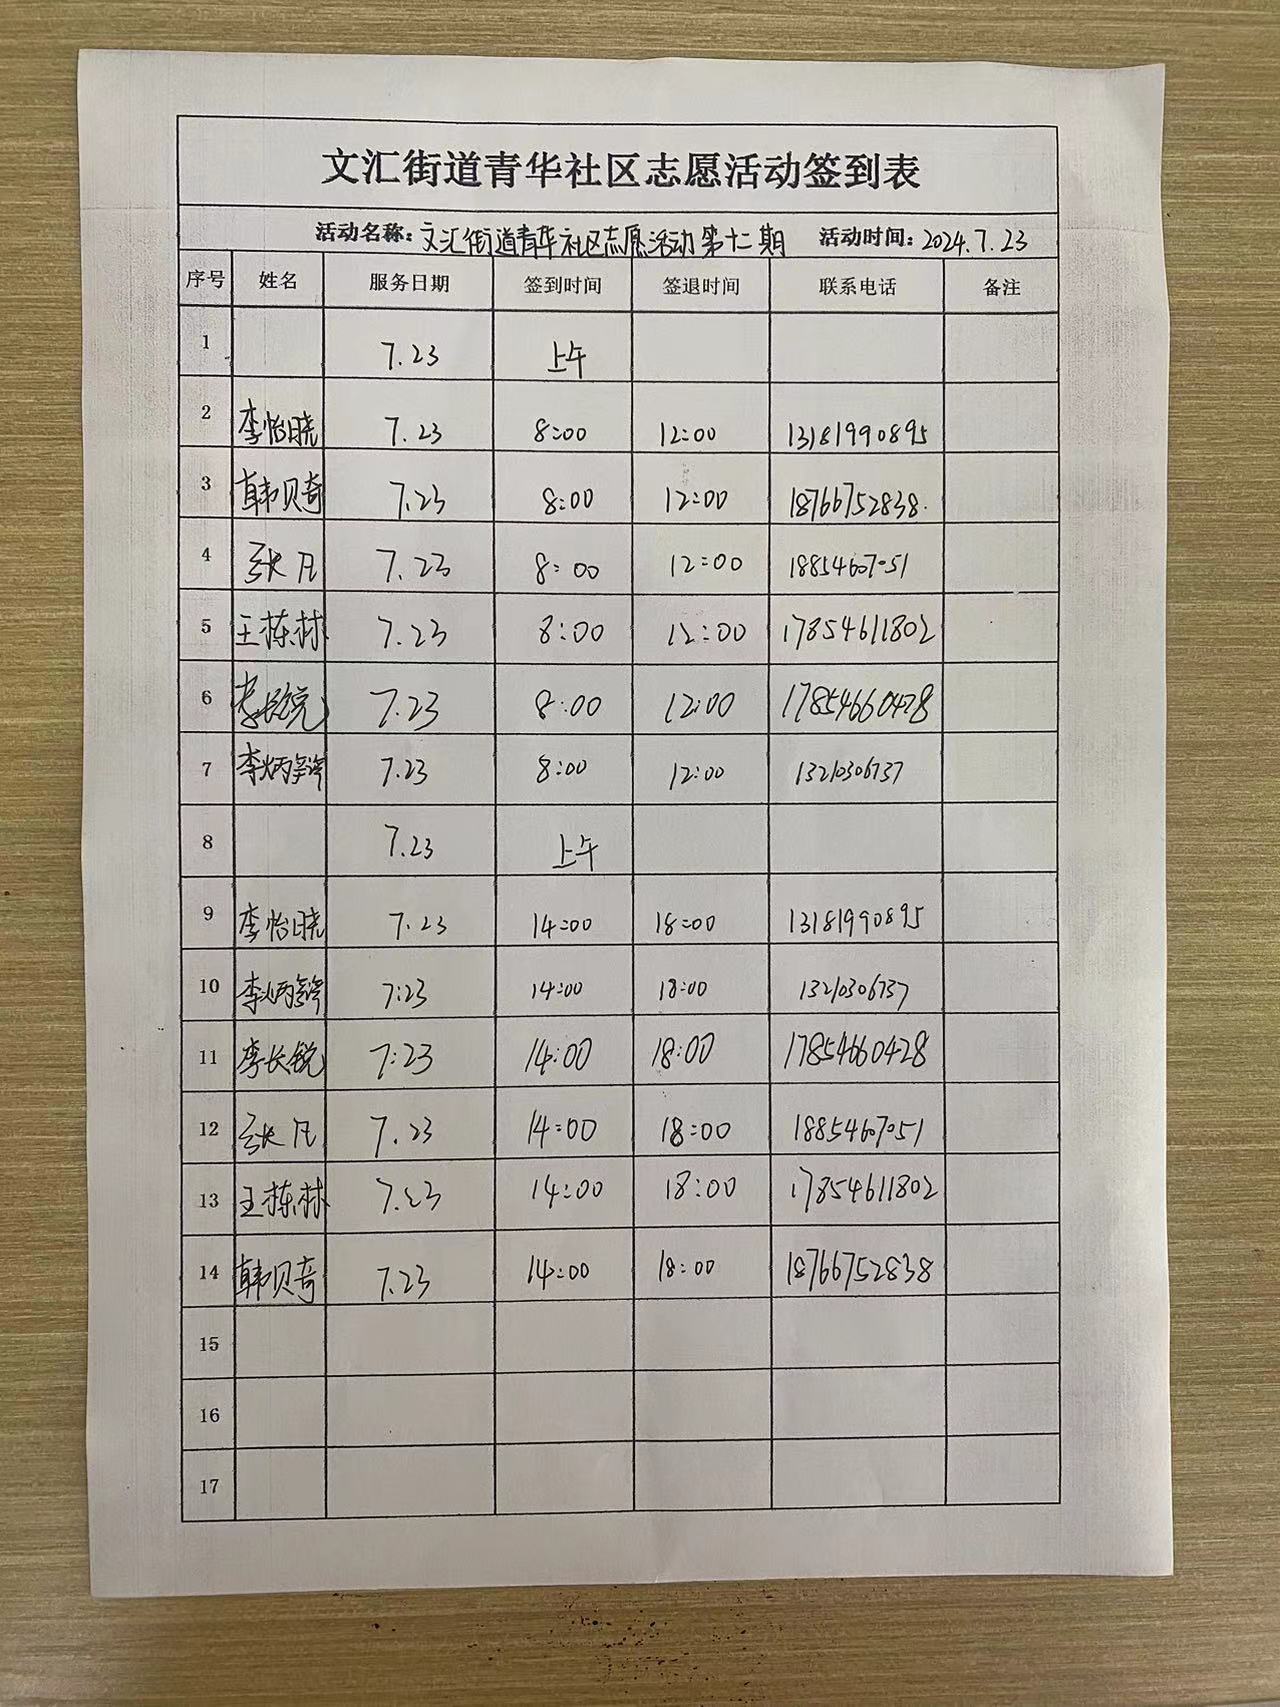 文汇街道青华社区志愿活动签到表
活动名称：文汇街道青华社区志愿活动第十二期 活动时间：2024.7.23
序号 姓名 服务日期 签到时间 签退时间 联系电话 备注
1 7.23 上午
2 李怡晓 7.23 8:00 12:00 13181990895
3 韩贝奇 7.23 8:00 12:00 18766752838.
4 张凡 7.23 8:00 12:00 18854607051
5 王栋林 7.23 8:00 12:00 17854611802
6 李长锐 7.23 8:00 12:00 17854660428
7 7.23 8:00 12:00 13210306737
8 7.23 上午
9 李怡晓 7.23 14:00 18:00 13181990895
10 7:23 14:00 18:00 13210306737
11 李长锐 7:23 14:00 18:00 17854660428
12 张凡 7.23 14:00 18:00 18854607051
13 王栋林 7.23 14:00 18:00 17854611802
14 韩贝奇 7.23 14:00 18:00 18766752838
15
16
17